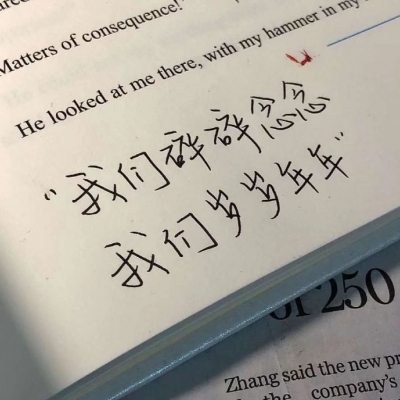 Matters of consequence!"
He looked at me there, with my hammer in my
"我们碎碎念念
我们岁岁年年"
of 250
Zhang said the new
the company's